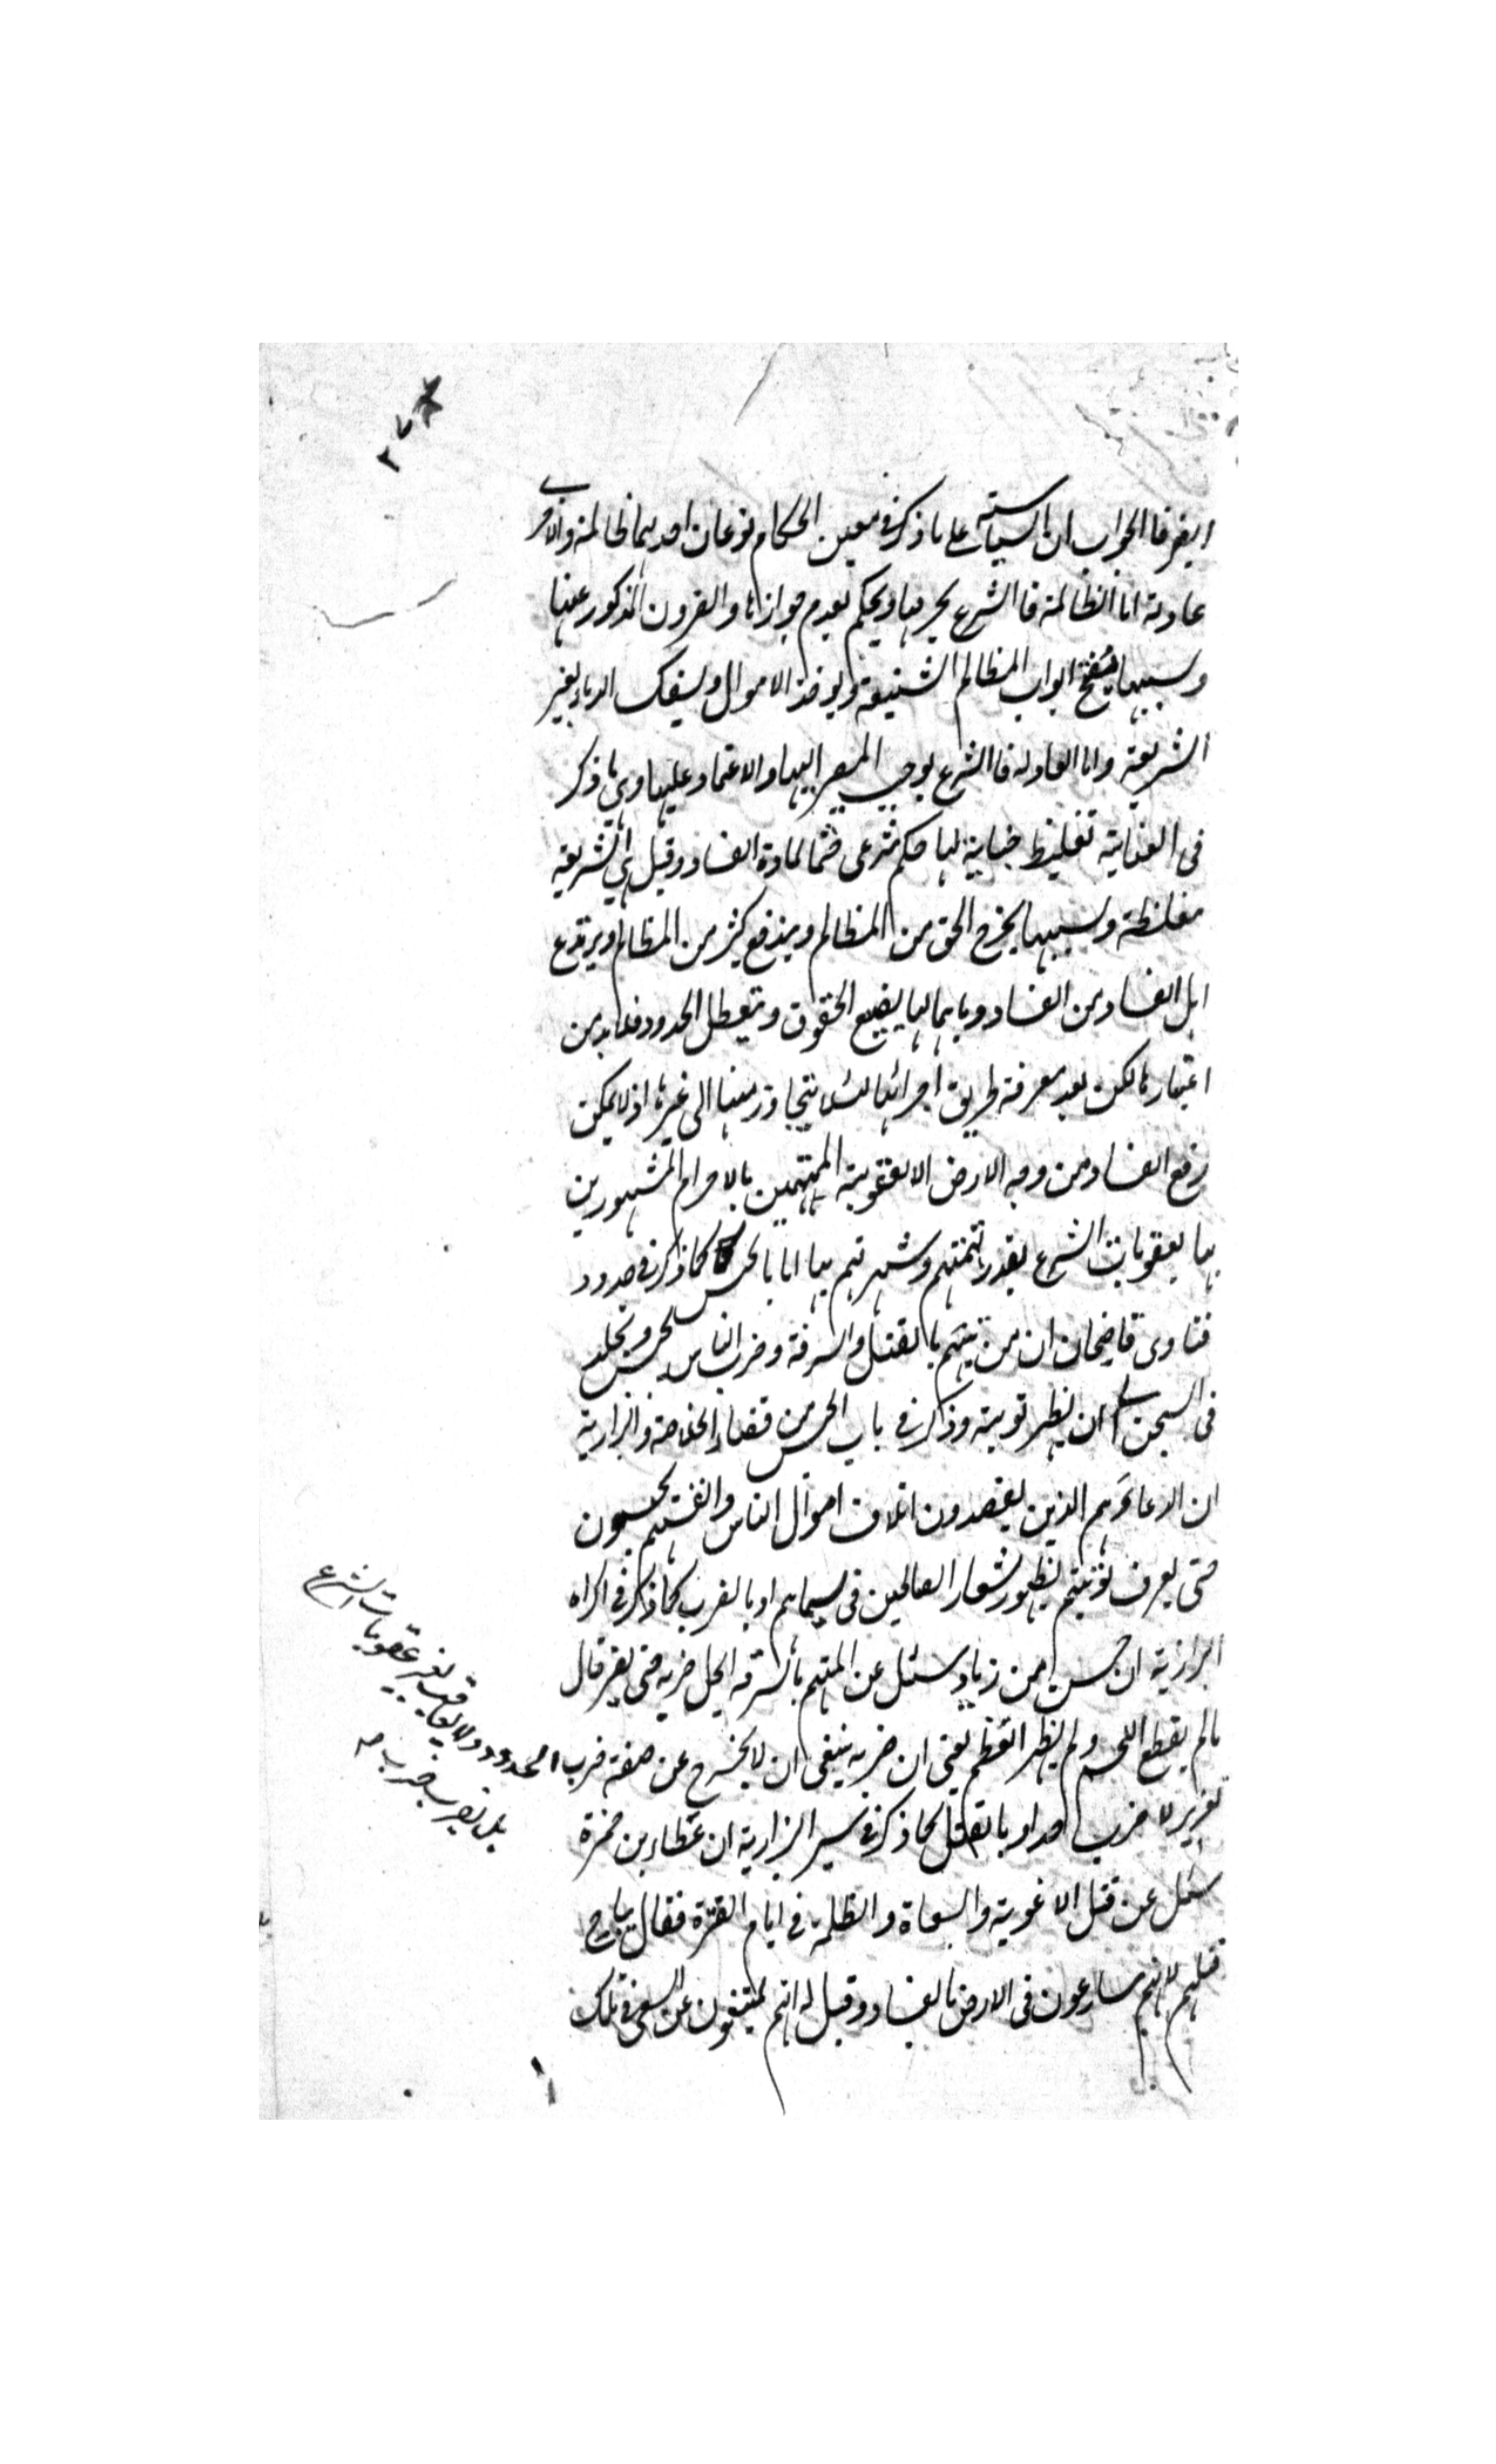 ٣٧
ايضر فالجواب ان السياسة على ما ذكر فى معين الحكام نوعان احديهما ظالمة والاخرى
عادلة اما الظالمة فالشرع يحرمها ويحكم بعدم جوازها والقرون المذكور عنها
وبسببها ينفتح ابواب المظالم الشنيعة ويوخذ الاموال ويسفك الدماء بغير
الشريعة واما العادلة فالشرع يوجب المصير اليها والاعتماد عليها وهى ما ذكر
فى العناية تغليظ جناية لها حكم شرعى حسما لمادة الفساد وقيل هى شريعة
مغلظة وبسببها يخرج الحق من المظالم ويندفع كثير من المظالم ويرتدع
اهل الفساد من الفساد وباهمالها يضيع الحقوق وتتعطل الحدود فلابد من
اعتبارها لكن بعد معرفة طريق اجرائها لئلا يتجاوز منها الى غيرها اذ لا يمكن
رفع الفساد من وجه الارض الا بعقوبة المتهمين بالاجرام المشهورين
بها بعقوبات الشرع بقدر تهمتهم وشهرتهم بها اما بالحبس كما ذكر فى حدود
فتاوى قاضيخان ان من يتهم بالقتل والسرقة وضرب الناس يحبس ويخلد
فى السجن الى ان يظهر توبته وذكر فى باب الحبس من قضاء الخلاصة والبزازية
ان الدعار هم الذين يقصدون اتلاف اموال الناس وانفسهم يحبسون
حتى يعرف توبتهم بظهور شعار الصالحين فى سيماهم او بالضرب كما ذكر فى اكراه
البزازية ان حسن بن زياد سئل عن المتهم بالسرقة ايحل ضربه حتى يقر قال
ما لم يقطع اللحم ولم يظهر العظم يعنى ان ضربه ينبغى ان لا يخرج عن صفة ضرب المحدود ولا يعاقب بغير عقوبات الشرع
بل يضرب ضرب صح
تعزير لا ضرب حد او بالقتل كما ذكر فى سير البزازية ان عطاء بن حمزة
سئل عن قتل الاعونة والسعاة والظلمة فى ايام الفترة فقال يباح
قتلهم لانهم ساعون فى الارض بالفساد وقيل له انهم يمتنعون عن السعى فى تلك